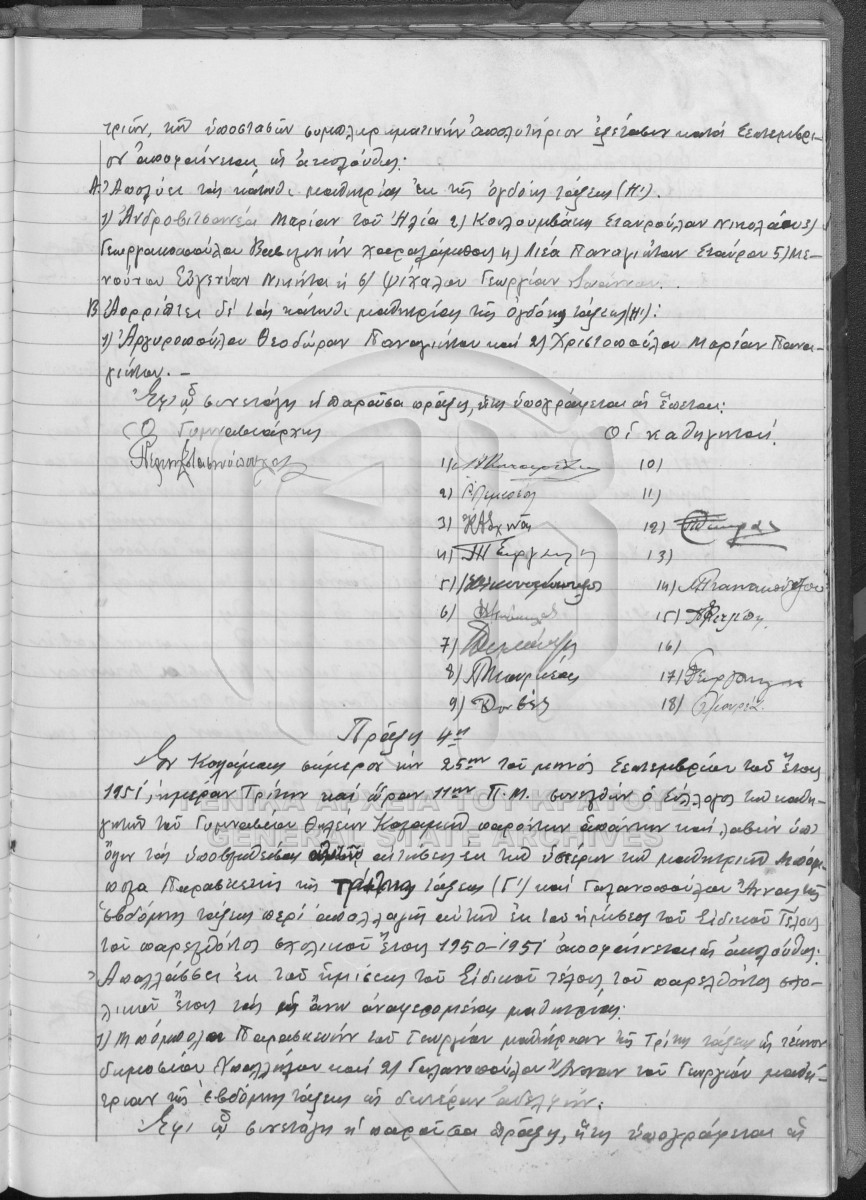 τριῶν, τῶν ὑποστασῶν συμπληρωματικὴν ἀπολυτήριον ἐξέτασιν κατὰ Σεπτέμβρι-
ον ἀποφαίνεται ὡς ἀκολούθως:
Α. Ἀπολύει τὰς κάτωθι μαθητρίας ἐκ τῆς ὀγδόης τάξεως (Η').
1) Ἀνδροβιτσανέα Μαρίαν τοῦ Ἠλία 2) Κουλουμβάκη Σταυρούλαν Νικολάου 3)
Γεωργακοπούλου Βασιλικὴν Χαραλάμπους 4) Λιέα Παναγιώταν Σταύρου 5) Με-
νούτου Εὐγενίαν Νικήτα ἢ 6) Ψύχαλου Γεωργίαν Ἰωάννου.
Β. Ἀπορρίπτει δὲ τὰς κάτωθι μαθητρίας τῆς ὀγδόης τάξεως (Η'):
1) Ἀργυροπούλου Θεοδώραν Παναγιώτου καὶ 2) Χριστοπούλου Μαρίαν Πανα-
γιώτου. –
Ἐφ' ᾧ συνετάγη ἡ παροῦσα πρᾶξις, ἥτις ὑπογράφεται ὡς ἕπεται:
Ὁ Γυμνασιάρχης Οἱ καθηγηταί
1) 10)
2) 11)
3) 12)
4) 13)
5) 14) Παπακ
6) 15)
7) 16)
8) 17)
9) 18)
Πρᾶξις 4η
Ἐν Καλάμαις σήμερον τὴν 25ην τοῦ μηνὸς Σεπτεμβρίου τοῦ ἔτους
1951, ἡμέραν Τρίτην καὶ ὥραν 11ην Π.Μ. συνῆλθεν ὁ Σύλλογος τῶν καθη-
γητῶν τοῦ Γυμνασίου Θηλέων Καλαμῶν παρόντων ἁπάντων καὶ λαβὼν ὑπ'
ὄψιν τὰς ὑποβληθείσας αἰτήσεις ἐκ τῶν ὑστέρων τῶν μαθητριῶν Μπόμ-
πολα Παρασκευῆς τῆς τρίτης τάξεως (Γ') καὶ Γαλανοπούλου Ἄννας τῆς
ἑβδόμης τάξεως περὶ ἀπαλλαγῆς αὐτῶν ἐκ τοῦ ἡμίσεος τοῦ Εἰδικοῦ Τέλους
τοῦ παρελθόντος σχολικοῦ ἔτους 1950-1951 ἀποφαίνεται ὡς ἀκολούθως:
Ἀπαλλάσσει ἐκ τοῦ ἡμίσεος τοῦ Εἰδικοῦ τέλους τοῦ παρελθόντος σχο-
λικοῦ ἔτους τὰς ὡς ἄνω ἀναφερομένας μαθητρίας:
1) Μπόμπολα Παρασκευὴν τοῦ Γεωργίου μαθήτριαν τῆς Τρίτης τάξεως ὡς τέκνον
δημοσίου ὑπαλλήλου καὶ 2) Γαλανοπούλου Ἄνναν τοῦ Γεωργίου μαθή-
τριαν τῆς ἑβδόμης τάξεως ὡς δευτέραν ἀδελφήν.
Ἐφ' ᾧ συνετάγη ἡ παροῦσα πρᾶξις, ἥτις ὑπογράφεται ὡς
ΓΕΝΙΚΑ ΑΡΧΕΙΑ ΤΟΥ ΚΡΑΤΟΥΣ
GENERAL STATE ARCHIVES